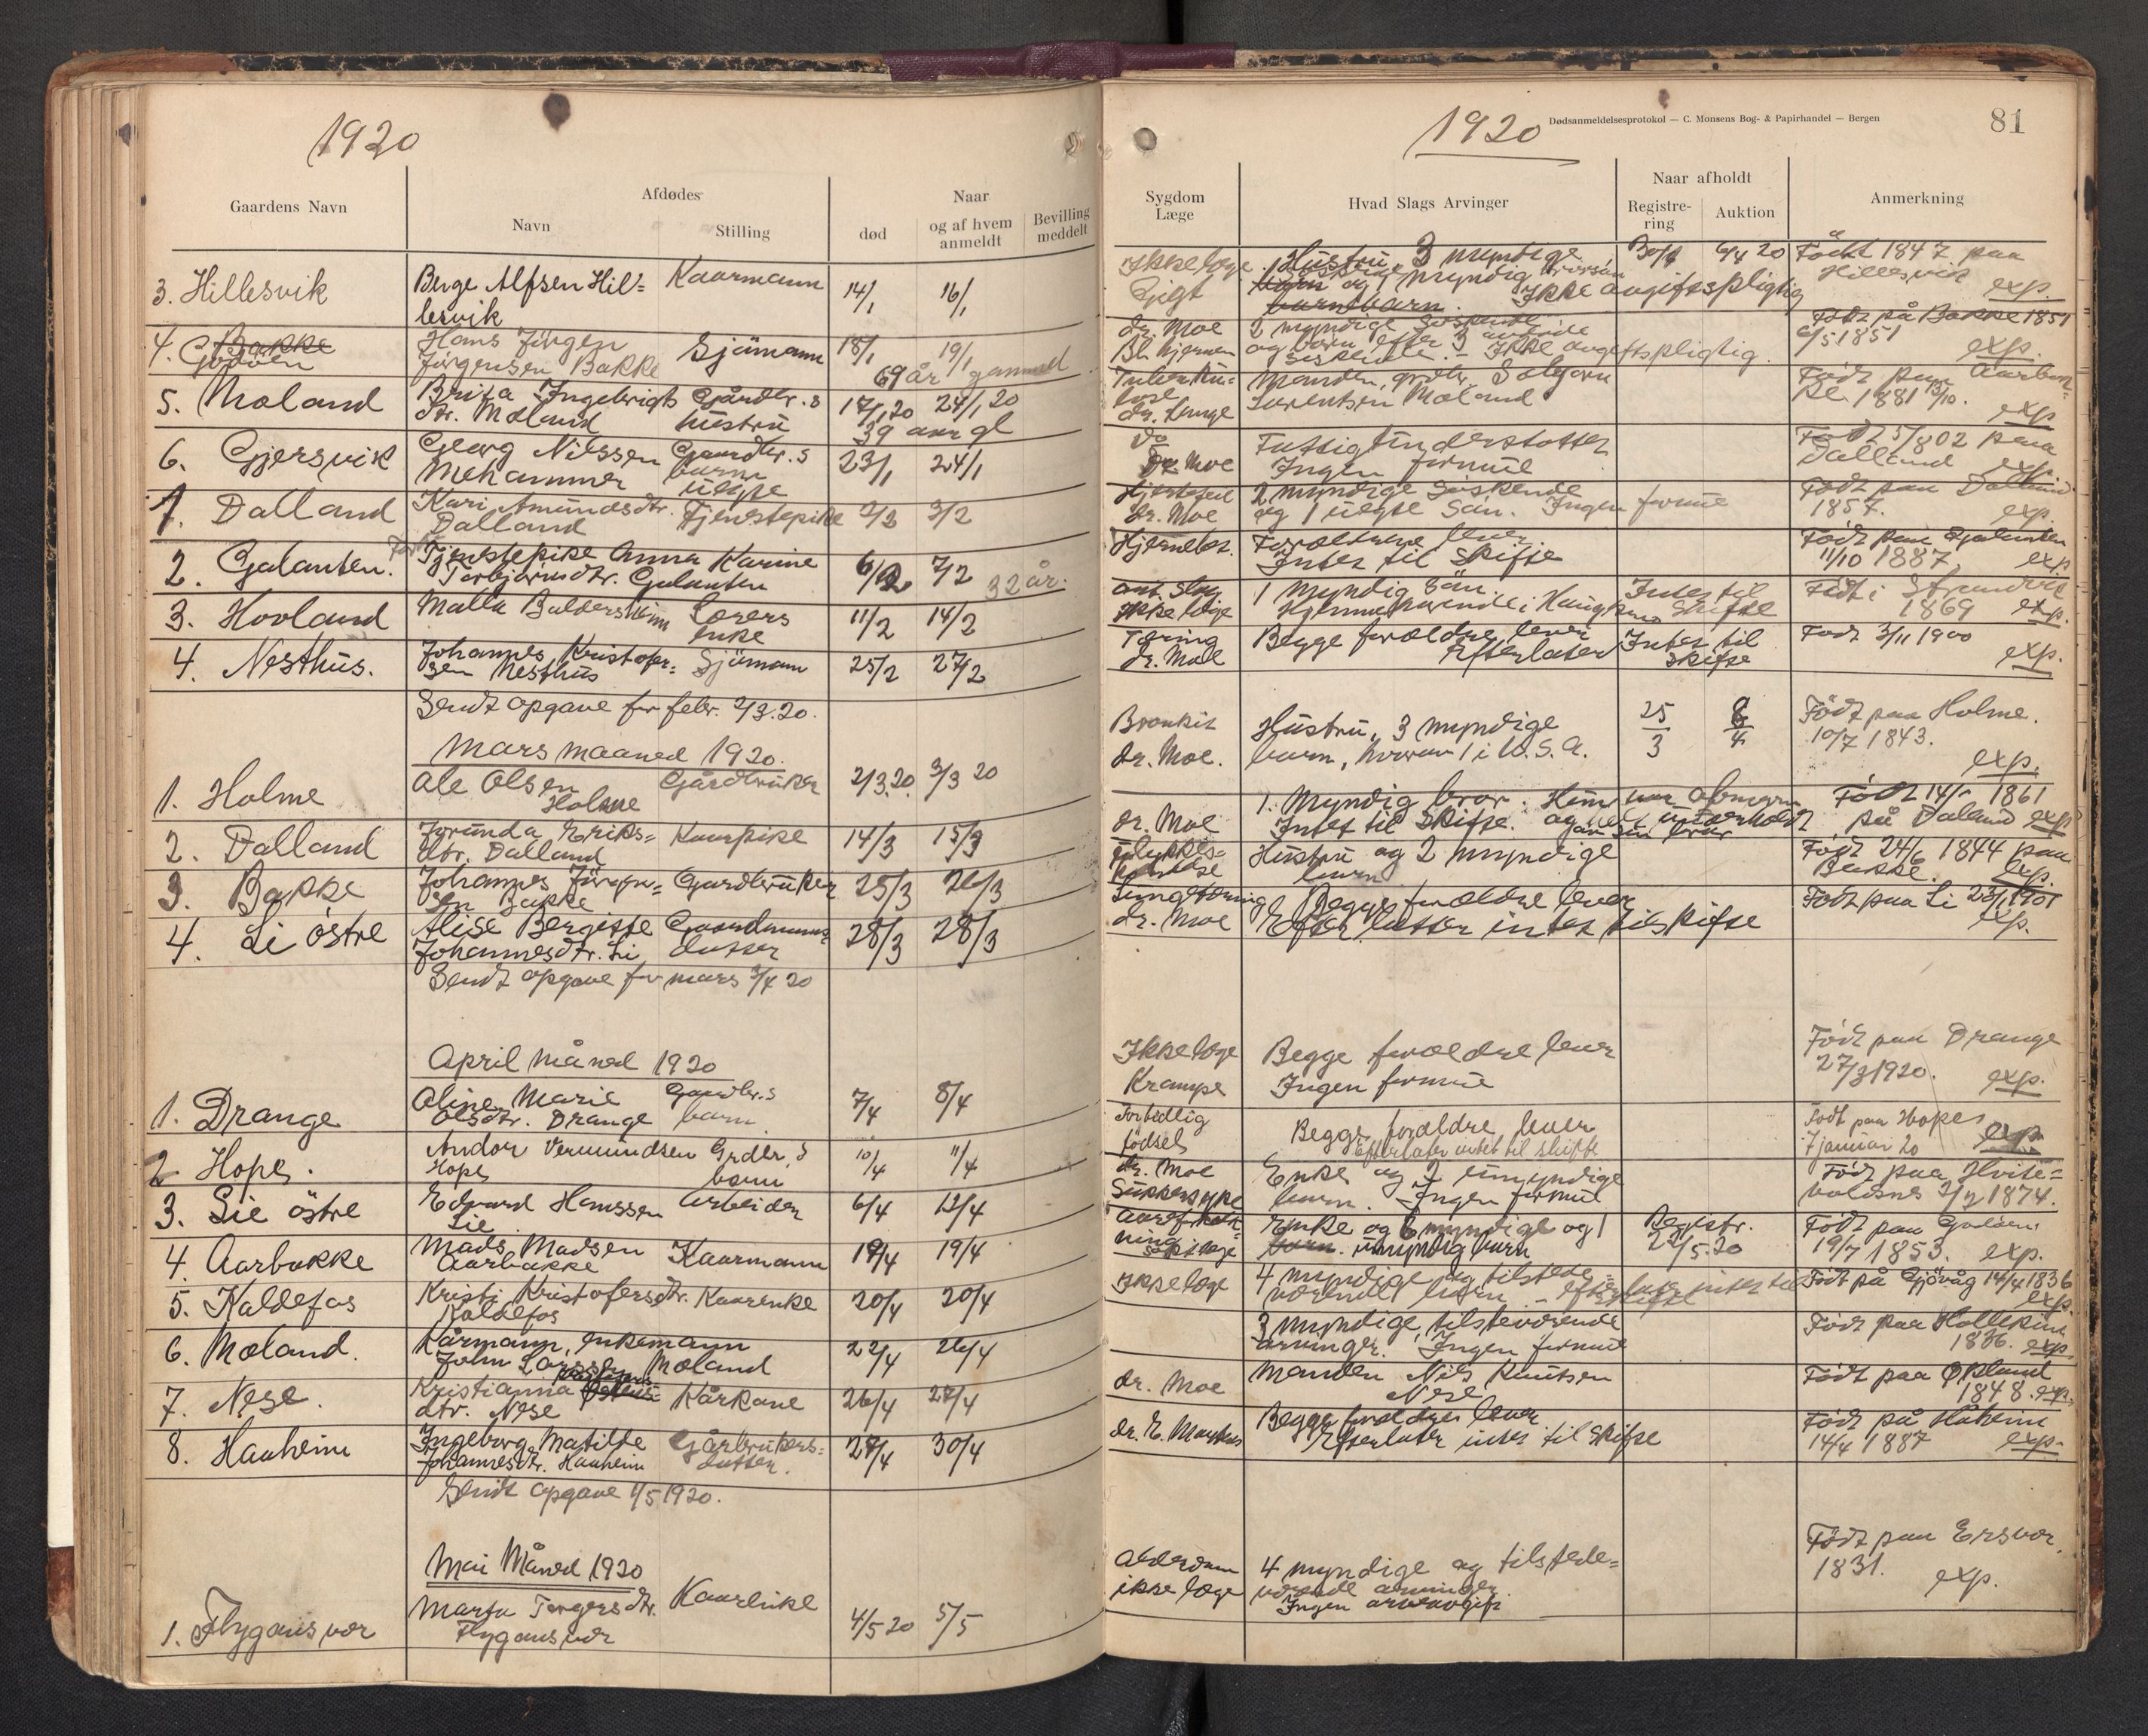 1920
Gaardens Navn
Afdødes
Navn
Stilling
Naar
død
og af hvem anmeldt
Bevilling meddelt
3. Hillesvik
Berge Alfsen Hil=
lesvik
Kaarmann
14/1
16/1
4. Bakke
Godöen
Hans Jörgen
Jörgensen Bakke
Sjömann
18/1
19/1
69 år gammel
5. Moland
Brita Ingebrigts
dtr. Moland
Gårdbr.s
hustru
17/1 20
24/1 20
39 aar gl
6. Gjersvik
Georg Nilssen
Mehammer
Gaardbr.s
barn
uegte
23/1
24/1
1. Dalland
Kari Amundsdtr.
Dalland
Tjenstepike
2/2
3/2
2. Galanten.
Tjenstepike Anna Karine
Torbjörnsdtr. Galanten
6/2
7/2
32 år.
3. Hovland
Malla Baldersheim
Lærers
enke
11/2
14/2
4. Nesthus.
Johannes Kristofer=
sen Nesthus
Sjömann
25/2
27/2
Sendt opgave for febr. 2/3.20.
Mars maaned 1920.
1. Holme
Ole Olsen
Holme
Gårdbruker
2/3.20.
3/3 20
2. Dalland
Jorunda Eriks=
dtr. Dalland
Kaarpike
14/3
15/3
3. Bakke
Johannes Jörgen=
sen Bakke
Gardbruker
25/3
26/3
4. Li östre
Alise Bergitte
Johannesdtr. Li
Gaardmanns
datter
28/3
28/3
Sendt opgave for mars 3/4 20
April Måned 1920
1. Drange
Oline Marie
Olsdtr. Drange
Gaardbr.s
barn
7/4
8/4
2 Hope.
Andor Vermundsen
Hope
Grdbr.s
barn
10/4
11/4
3. Lie östre
Edvard Hanssen
Lie
Arbeider
6/4
12/4
4. Aarbakke
Mads Madsen
Aarbakke
Kaarmann
19/4
19/4
5. Kaldefos
Kristi Kristofersdtr.
Kaldefos
Kaarenke
20/4
20/4
6. Moland.
Kårmann, enkemann
John Larssen Moland
22/4
26/4
7. Nese.
Kristianna
dtr. Nese
Kårkone
26/4
27/4
8. Hauheim
Ingeborg Matilde
Johannesdtr. Hauheim
Gårbrukers=
datter.
29/4
30/4
Sendt opgave 1/5 1920.
Mai Måned 1920
1. Flygansvær
Marta Torgersdtr.
Flygansvær
Kaarenke
4/5 20
5/5
1920
Dødsanmeldelsesprotokol — C. Monsens Bog- & Papirhandel — Bergen
81
Sygdom
Læge
Hvad Slags Arvinger
Naar afholdt
Registre-
ring
Auktion
Anmerkning
Ikke læge.
Gigt
Hustru, 3 myndige
og 1 myndig
barnebarn. Ikke avgiftspligtig
6/4 20
Född 1847 paa
Hillesvik
exp.
dr. Moe
2 myndige søskende
og barn efter 3 avdöde
siskende. - Ikke avgiftspligtig.
Född på Bakke 1851
6/5 1851
exp.
Tuberku=
lose
dr. Lange
Manden, grdbr. Salomon
Larentsen Moland
Född paa Aarbak
ke 1881
exp.
Do
Dr. Moe
Fattigunderstöttet
Ingen formue
Född 5/8 02 paa
Dalland
exp.
Hjertefeil
dr. Moe
2 myndige siskende
og 1 uegte sön. Ingen formue
Född paa Dalland
1857.
exp.
Hjernebet.
Forældrene lever.
Intet til skifte
Född paa Galanten
11/10 1887.
exp
ant. Slag
Ikke læge
1 myndig sön.
Hjemmehørende i
Intet til
skifte
Född i Strandvik
1869
exp.
Tæring
dr. Moe
Begge forældre lever
Efterlater Intet til
skifte
Född 3/11 1900
exp.
Bronkit
dr. Moe.
Hustru, 3 myndige
barn, hvorav 1 i U.S.A.
25/3
8/4
Född paa Holme.
10/7 1843.
exp.
dr. Moe
1. Myndig bror. Hun
Intet til skifte.
Född 14/ 1861
på Daland exp
ulykkes=
hendelse
Hustru og 2 myndige
barn
Född 24/6 1844 paa
Bakke.
exp.
Lungetæring
dr. Moe
Begge forældre lever
Efterlatter intet til skifte
Född paa Li 23/1 1901
exp.
Ikke læge
Krampe
Begge forældre lever
Ingen formue
Född paa Drange
27/3 1920.
exp.
Fortidlig
födsel
Begge forældre lever
Efterlater intet til skifte
Født paa Hope
7 januar 20
exp.
dr. Moe
Sukkersyke
Enke og 2 umyndige
barn. Ingen formue
Född paa Hvite=
voldsnes 2/7 1874.
Aareforkalk
ning
Enke og 6 myndige og 1
barn. umyndig barn
Registr.
22/5.20
Född paa
19/7 1853. exp.
Ikke læge
4 myndige og tilstede=
værende barn - efterlater intet til
skifte
Född på Gjövåg 14/4 1836
exp.
3 myndige, tilsteværende
arvinger. Ingen formue
Född paa
1836. exp.
dr. Moe
Manden Nils Knutsen
Nese
Född paa Økland
1848. exp.
Begge forældre lever
Efterlater intet til skifte
Född på Håheim
14/4 1887
exp.
Alderdom
ikke læge
4 myndige og tilstede=
værende arvinger.
Ingen arveavgift
Född paa Ersvær.
1831.
exp.